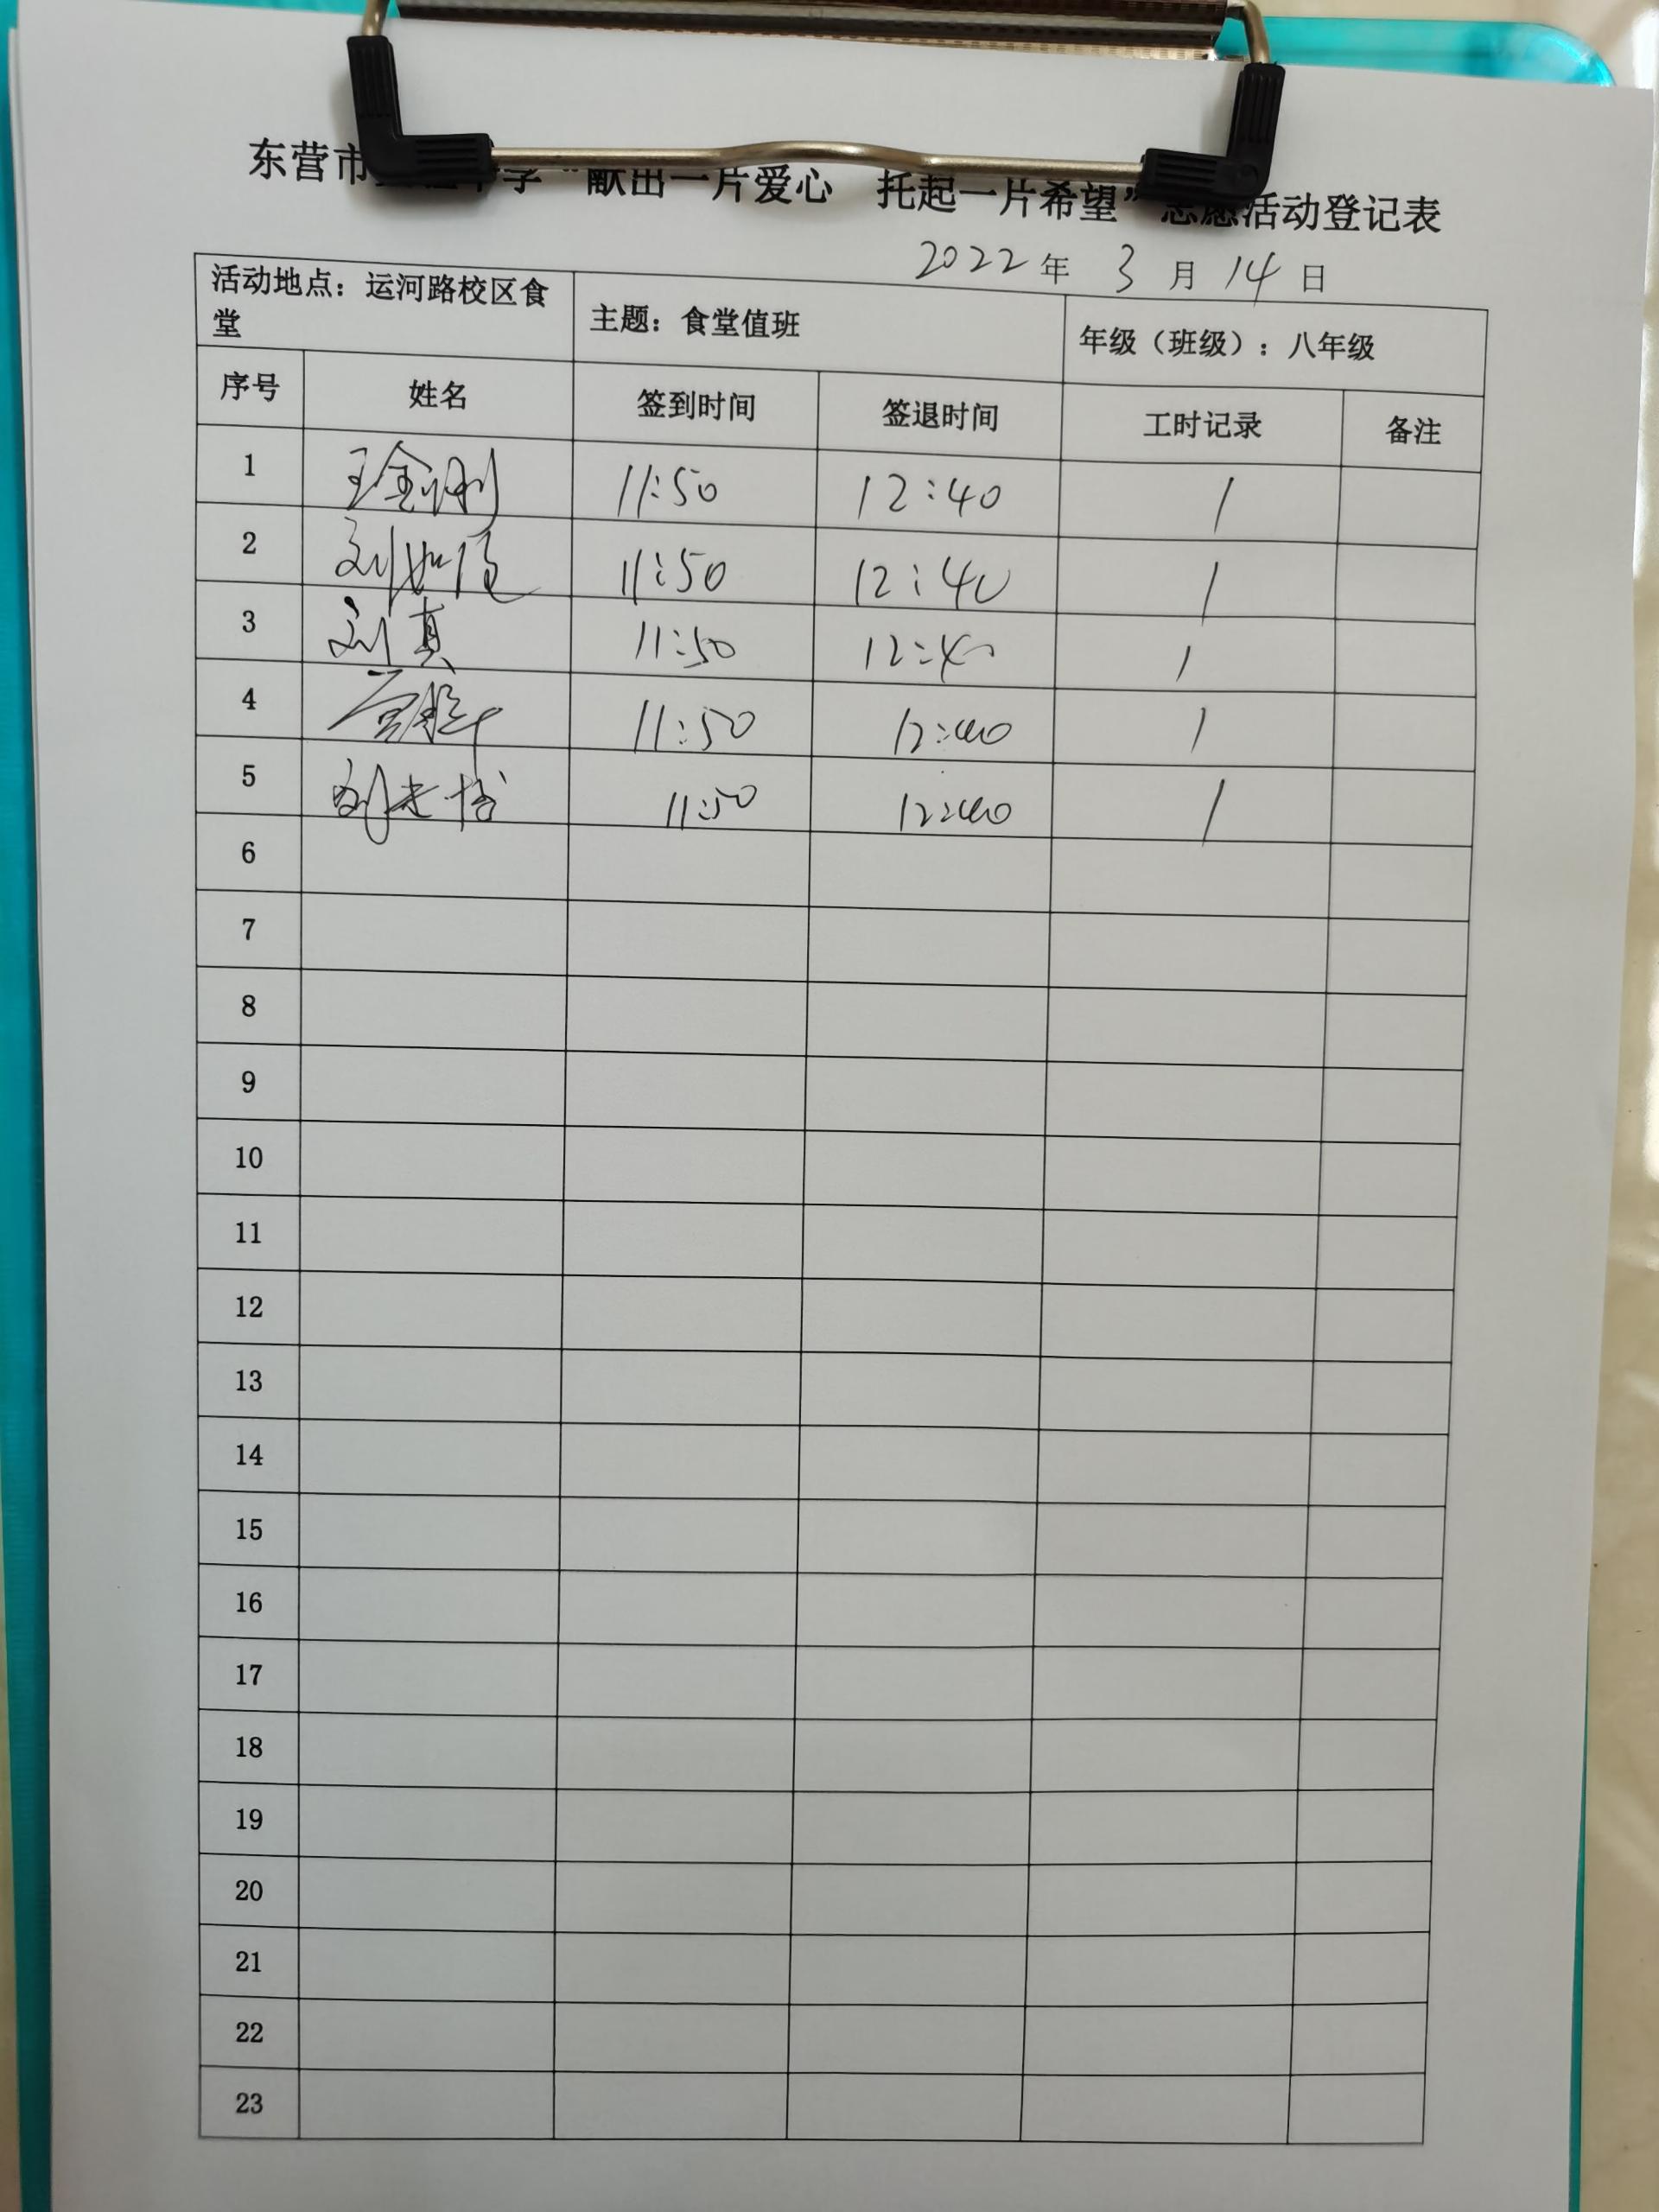 东营市 学“献出一片爱心 托起一片希望”志愿活动登记表
2022年 3月 14日
活动地点：运河路校区食堂 主题：食堂值班 年级（班级）：八年级
序号 姓名 签到时间 签退时间 工时记录 备注
1 王金刚 11:50 12:40 1
2 11:50 12:40 1
3 刘真 11:50 12:40 1
4 11:50 12:40 1
5 11:50 12:40 1
6
7
8
9
10
11
12
13
14
15
16
17
18
19
20
21
22
23